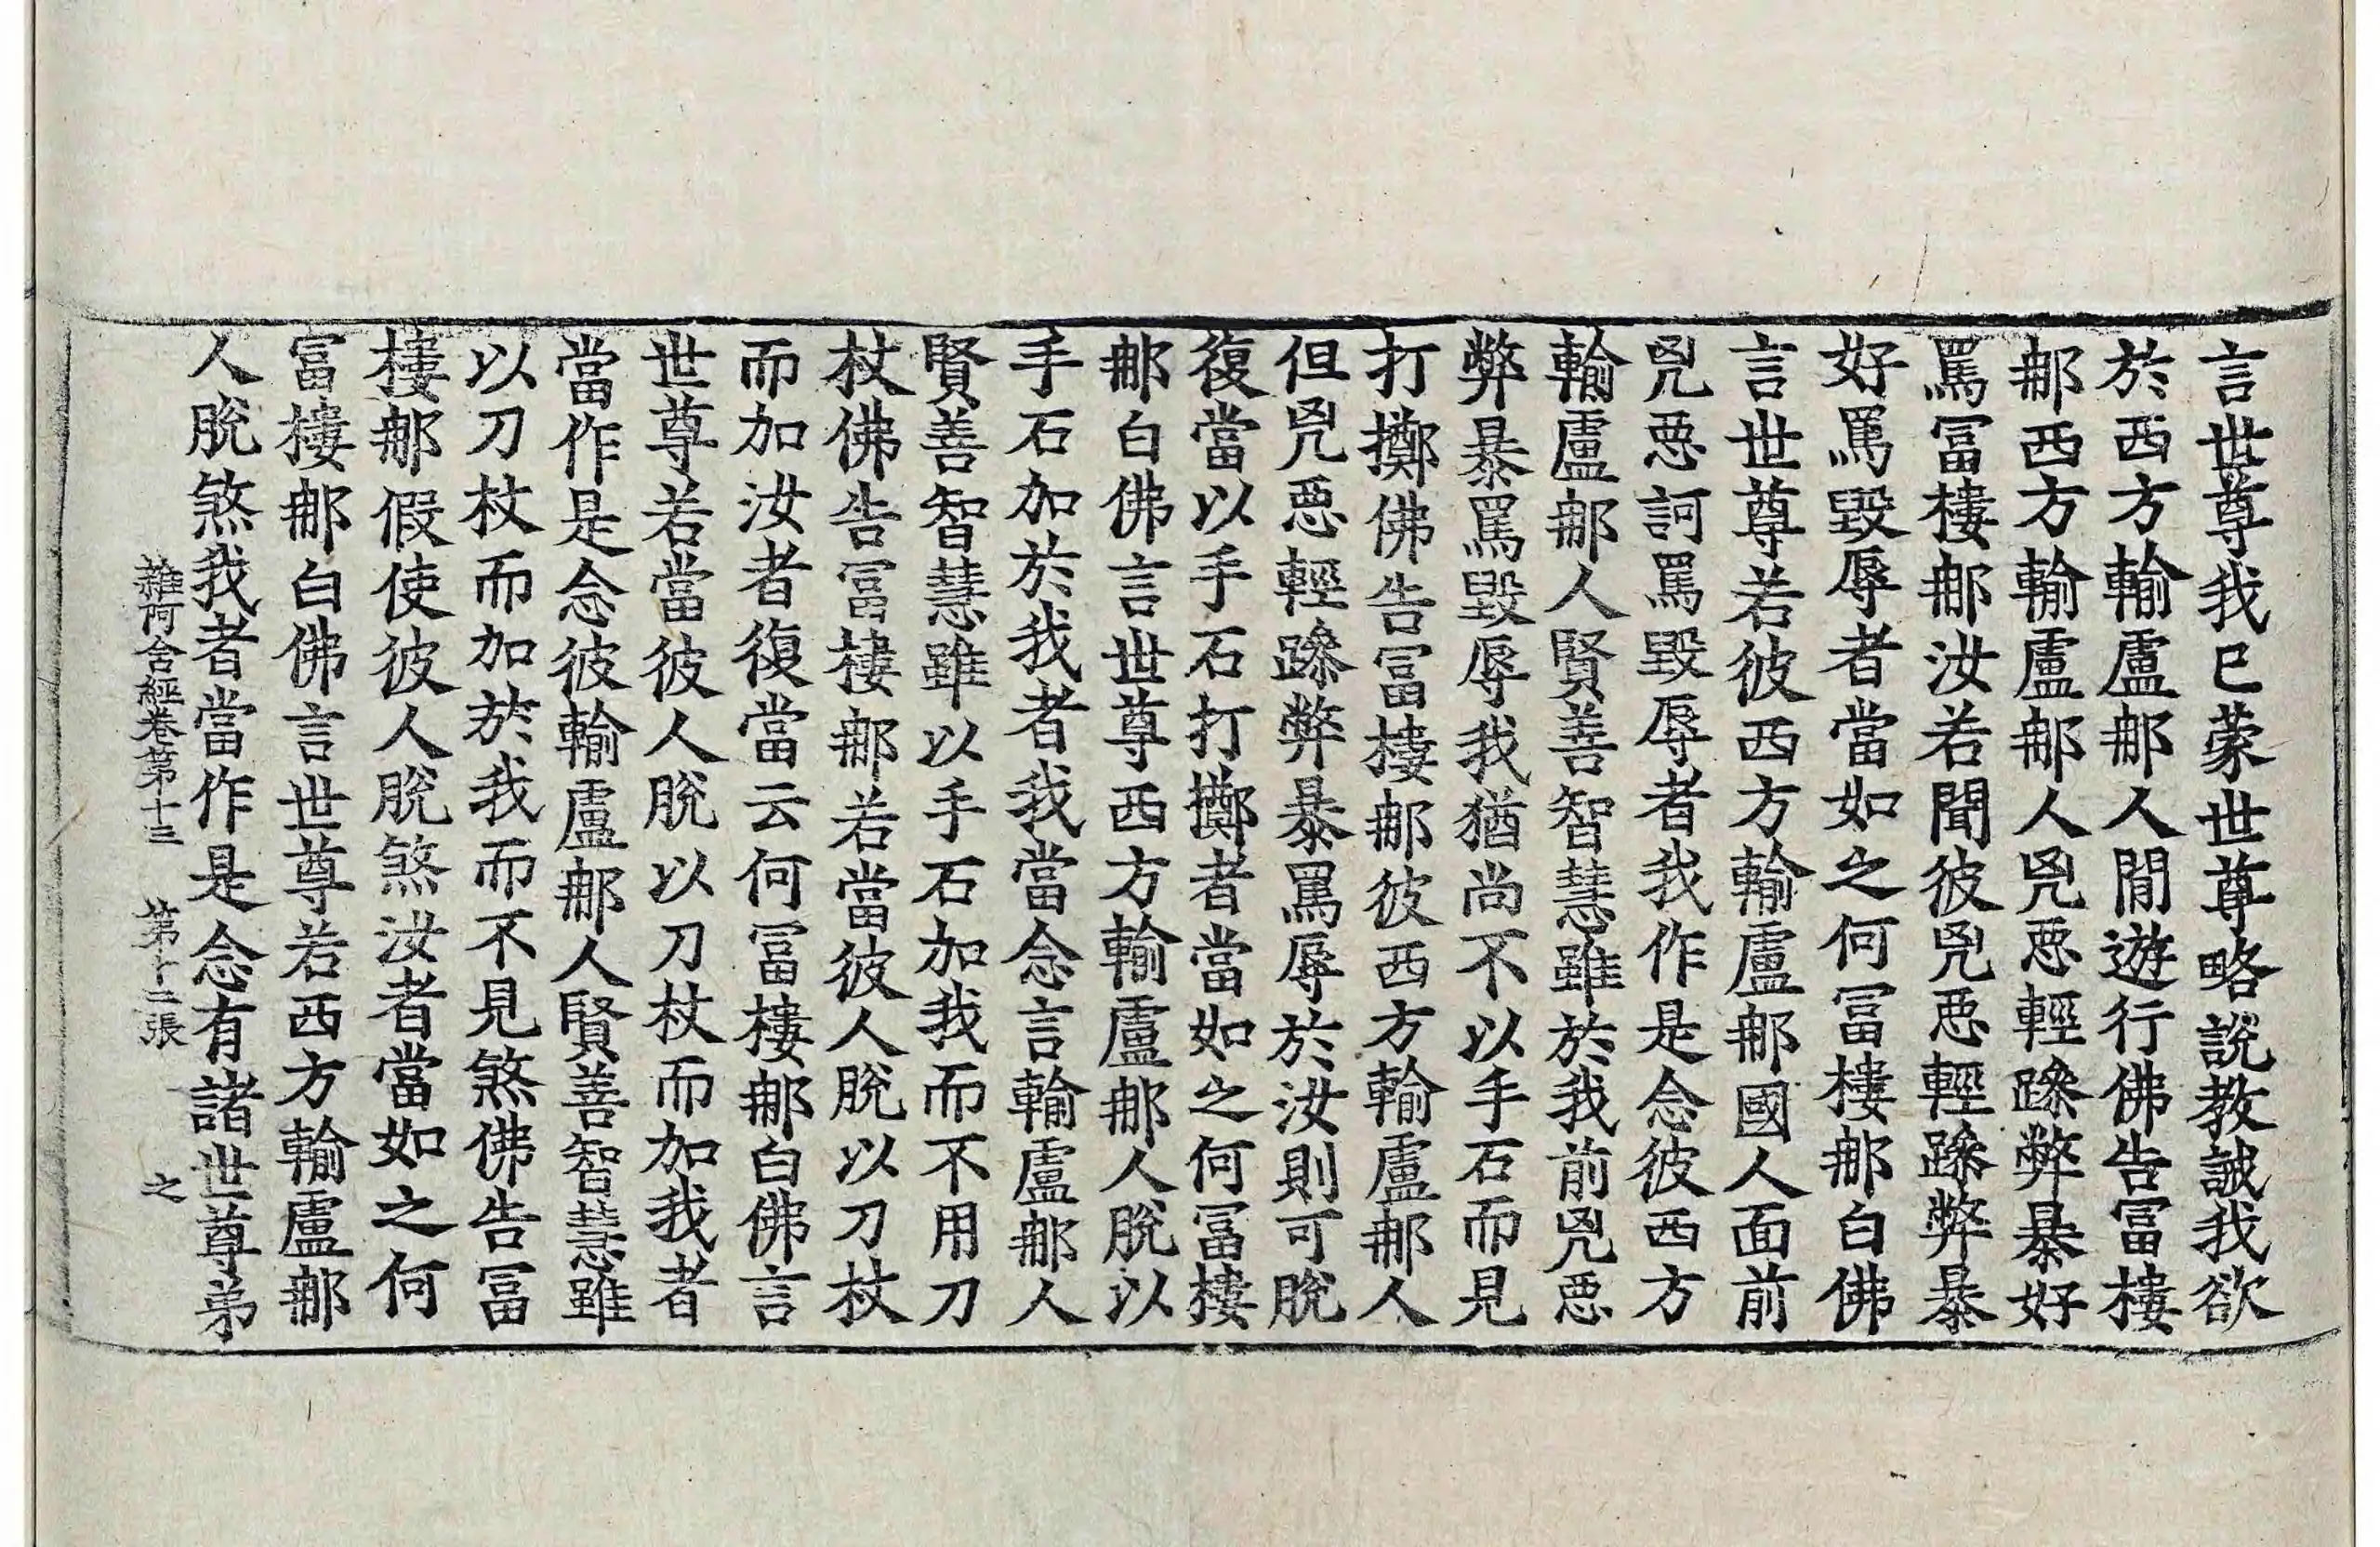 言世尊我已蒙世尊略說教誡我欲
於西方輸盧那人閒遊行佛告富樓
那西方輸盧那人兇惡輕躁弊暴好
罵冨樓那汝若聞彼兇惡輕躁弊暴
好罵毀辱者當如之何冨樓那白佛
言世尊若彼西方輸盧那國人面前
兇惡訶罵毀辱者我作是念彼西方
輸盧那人賢善智慧雖於我前兇惡
弊暴罵毀辱我猶尚不以手石而見
打擲佛告冨樓那彼西方輸盧那人
但兇惡輕躁弊暴罵辱於汝則可脫
復當以手石打擲者當如之何冨樓
那白佛言世尊西方輸盧那人脫以
手石加於我者我當念言輸盧那人
賢善智慧雖以手石加我而不用刀
杖佛告冨樓那若當彼人脫以刀杖
而加汝者復當云何冨樓那白佛言
世尊若當彼人脫以刀杖而加我者
當作是念彼輸盧那人賢善智慧雖
以刀杖而加於我而不見煞佛告冨
樓那假使彼人脫煞汝者當如之何
富樓那白佛言世尊若西方輸盧那
人脫煞我者當作是念有諸世尊弟
雜阿含經卷第十三 第十二張 之